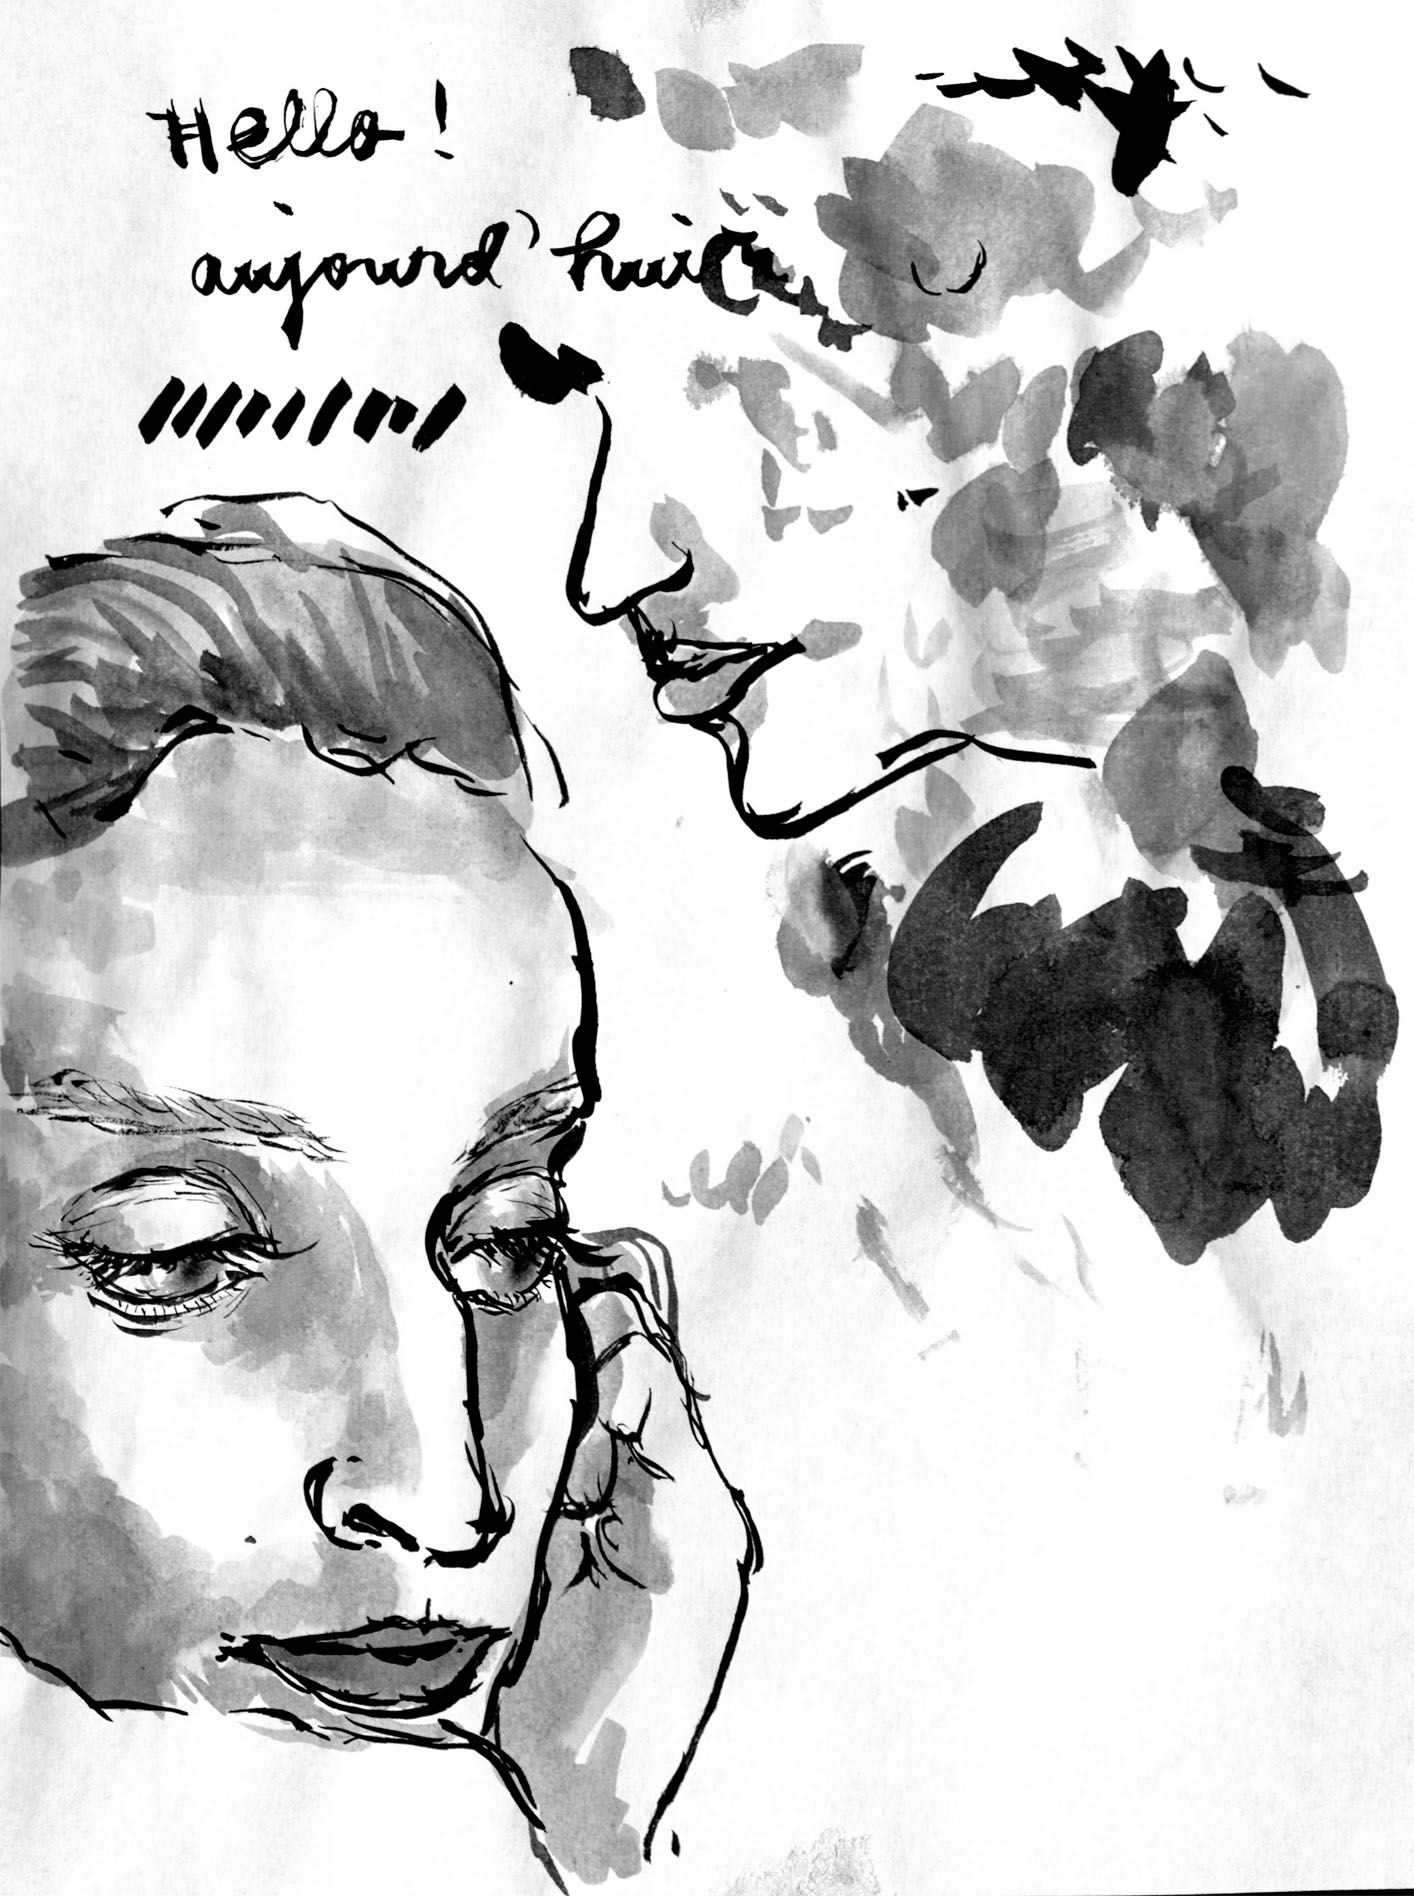 Hello!
aujourd'hui